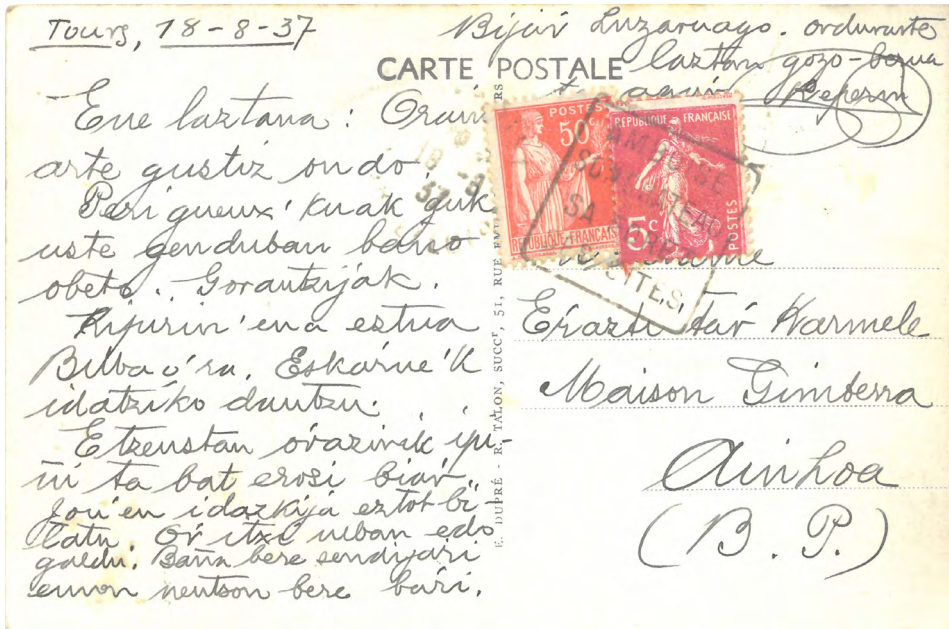 Tours, 18-8-37
Bijar Luzaruago. ordurarte
laztan gozo-beroa
Peperen
CARTE POSTALE
Ene laztana: Orain
arte gustiz ondo.
Perigueux'kuak guk
uste genduban baño
obeto. Gorantzijak.
Kijurin'ena estua
Bilbao'ra. Eskarne'k
idatziko dautzu.
Etzeustan orazirik ipi-
ñi ta bat erosi biar.
Jon'en idazkija eztot bi-
latu. Or itxi neban edo
galdu. Baña bere sendijari
emon neutson bere barri.
E. DUPRÉ - R. TALON, SUCCr, 51, RUE
POSTES
50c
REPUBLIQUE FRANÇAISE
REPUBLIQUE FRANÇAISE
5c
POSTES
AMBOISE
SON CHATEAU
Erazti'tar Karmele
Maison Gimberra
Ainhoa
(B. P.)